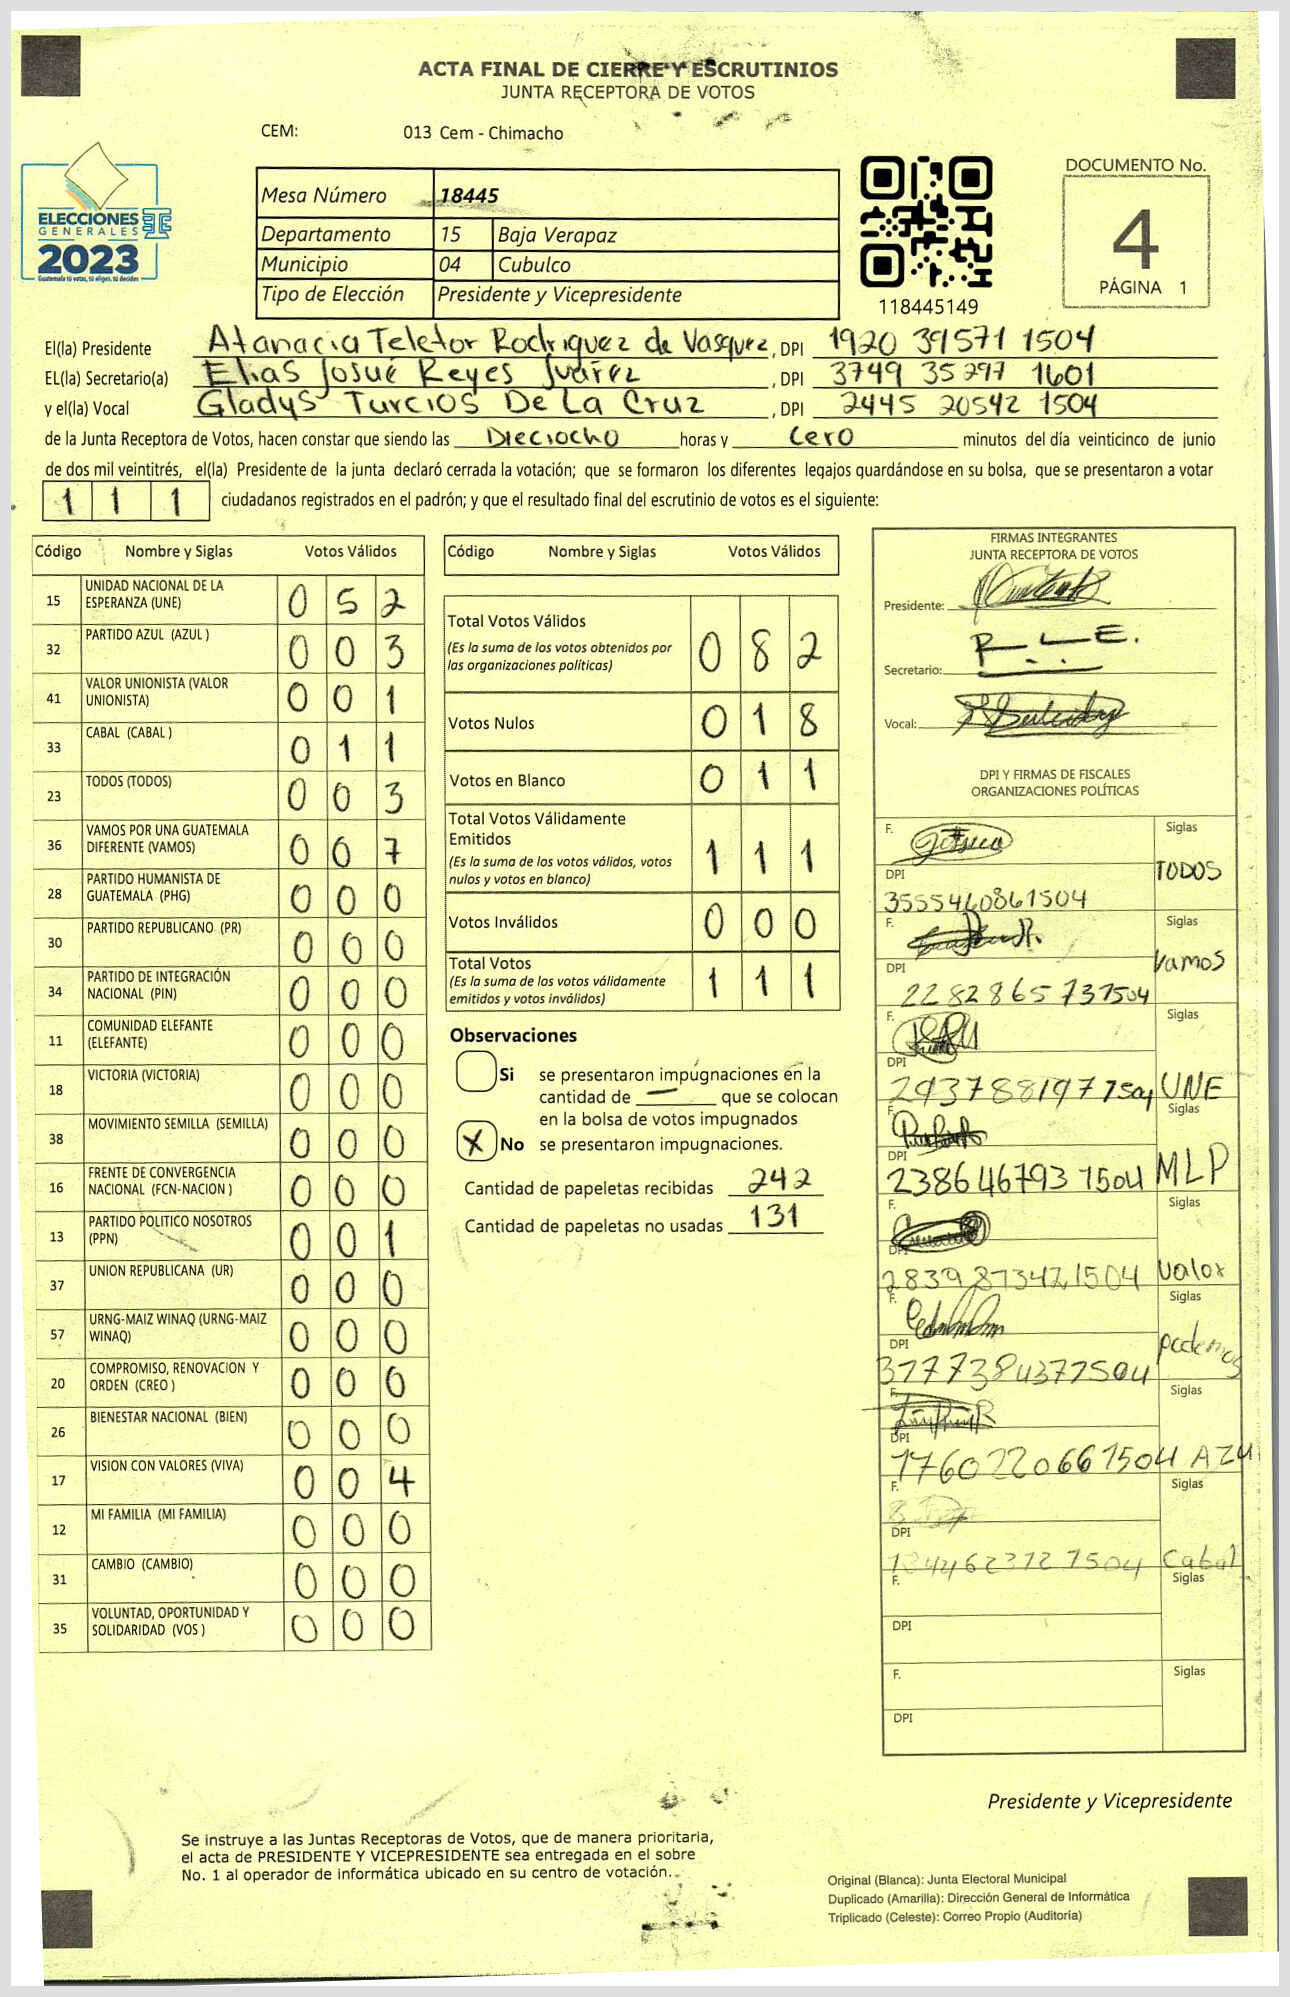 ACTA FINAL DE CIERRE Y ESCRUTINIOS
JUNTA RECEPTORA DE VOTOS
CEM: 013 Cem - Chimacho
ELECCIONES
GENERALES
2023
Guatemala tú votas, tú eliges, tú decides
Mesa Número 18445
Departamento 15 Baja Verapaz
Municipio 04 Cubulco
Tipo de Elección Presidente y Vicepresidente
118445149
DOCUMENTO No.
4
PÁGINA 1
El(la) Presidente Atanacia Teletor Rodriguez de Vasquez, DPI 1920 39571 1504
EL(la) Secretario(a) Elias Josué Reyes Juárez, DPI 3749 35297 1601
y el(la) Vocal Gladys Turcios De La Cruz, DPI 2445 20542 1504
de la Junta Receptora de Votos, hacen constar que siendo las Dieciocho horas y cero minutos del día veinticinco de junio
de dos mil veintitrés, el(la) Presidente de la junta declaró cerrada la votación; que se formaron los diferentes legajos guardándose en su bolsa, que se presentaron a votar
1 1 1 ciudadanos registrados en el padrón; y que el resultado final del escrutinio de votos es el siguiente:
Código Nombre y Siglas Votos Válidos
15 UNIDAD NACIONAL DE LA ESPERANZA (UNE) 0 5 2
32 PARTIDO AZUL (AZUL ) 0 0 3
41 VALOR UNIONISTA (VALOR UNIONISTA) 0 0 1
33 CABAL (CABAL ) 0 1 1
23 TODOS (TODOS) 0 0 3
36 VAMOS POR UNA GUATEMALA DIFERENTE (VAMOS) 0 0 7
28 PARTIDO HUMANISTA DE GUATEMALA (PHG) 0 0 0
30 PARTIDO REPUBLICANO (PR) 0 0 0
34 PARTIDO DE INTEGRACIÓN NACIONAL (PIN) 0 0 0
11 COMUNIDAD ELEFANTE (ELEFANTE) 0 0 0
18 VICTORIA (VICTORIA) 0 0 0
38 MOVIMIENTO SEMILLA (SEMILLA) 0 0 0
16 FRENTE DE CONVERGENCIA NACIONAL (FCN-NACION ) 0 0 0
13 PARTIDO POLITICO NOSOTROS (PPN) 0 0 1
37 UNION REPUBLICANA (UR) 0 0 0
57 URNG-MAIZ WINAQ (URNG-MAIZ WINAQ) 0 0 0
20 COMPROMISO, RENOVACION Y ORDEN (CREO ) 0 0 0
26 BIENESTAR NACIONAL (BIEN) 0 0 0
17 VISION CON VALORES (VIVA) 0 0 4
12 MI FAMILIA (MI FAMILIA) 0 0 0
31 CAMBIO (CAMBIO) 0 0 0
35 VOLUNTAD, OPORTUNIDAD Y SOLIDARIDAD (VOS ) 0 0 0
Código Nombre y Siglas Votos Válidos
Total Votos Válidos 0 8 2
(Es la suma de los votos obtenidos por
las organizaciones políticas)
Votos Nulos 0 1 8
Votos en Blanco 0 1 1
Total Votos Válidamente
Emitidos 1 1 1
(Es la suma de los votos válidos, votos
nulos y votos en blanco)
Votos Inválidos 0 0 0
Total Votos 1 1 1
(Es la suma de los votos válidamente
emitidos y votos inválidos)
Observaciones
Si se presentaron impugnaciones en la
cantidad de — que se colocan
en la bolsa de votos impugnados
X No se presentaron impugnaciones.
Cantidad de papeletas recibidas 242
Cantidad de papeletas no usadas 131
FIRMAS INTEGRANTES
JUNTA RECEPTORA DE VOTOS
Presidente:
Secretario: R.L.E.
Vocal:
DPI Y FIRMAS DE FISCALES
ORGANIZACIONES POLÍTICAS
F. Siglas
DPI TODOS
3555460861504
F. Siglas
DPI Vamos
2282865731504
F. Siglas
DPI
2937881971504 UNE
F. Siglas
DPI
2386467931504 MLP
F. Siglas
DPI
2839873421504 Valor
F. Siglas
DPI Podemos
3777384371504
F. Siglas
DPI
1760220661504 AZUL
F. Siglas
DPI
Cabal
F. Siglas
DPI
F. Siglas
DPI
Presidente y Vicepresidente
Se instruye a las Juntas Receptoras de Votos, que de manera prioritaria,
el acta de PRESIDENTE Y VICEPRESIDENTE sea entregada en el sobre
No. 1 al operador de informática ubicado en su centro de votación.
Original (Blanca): Junta Electoral Municipal
Duplicado (Amarilla): Dirección General de Informática
Triplicado (Celeste): Correo Propio (Auditoría)